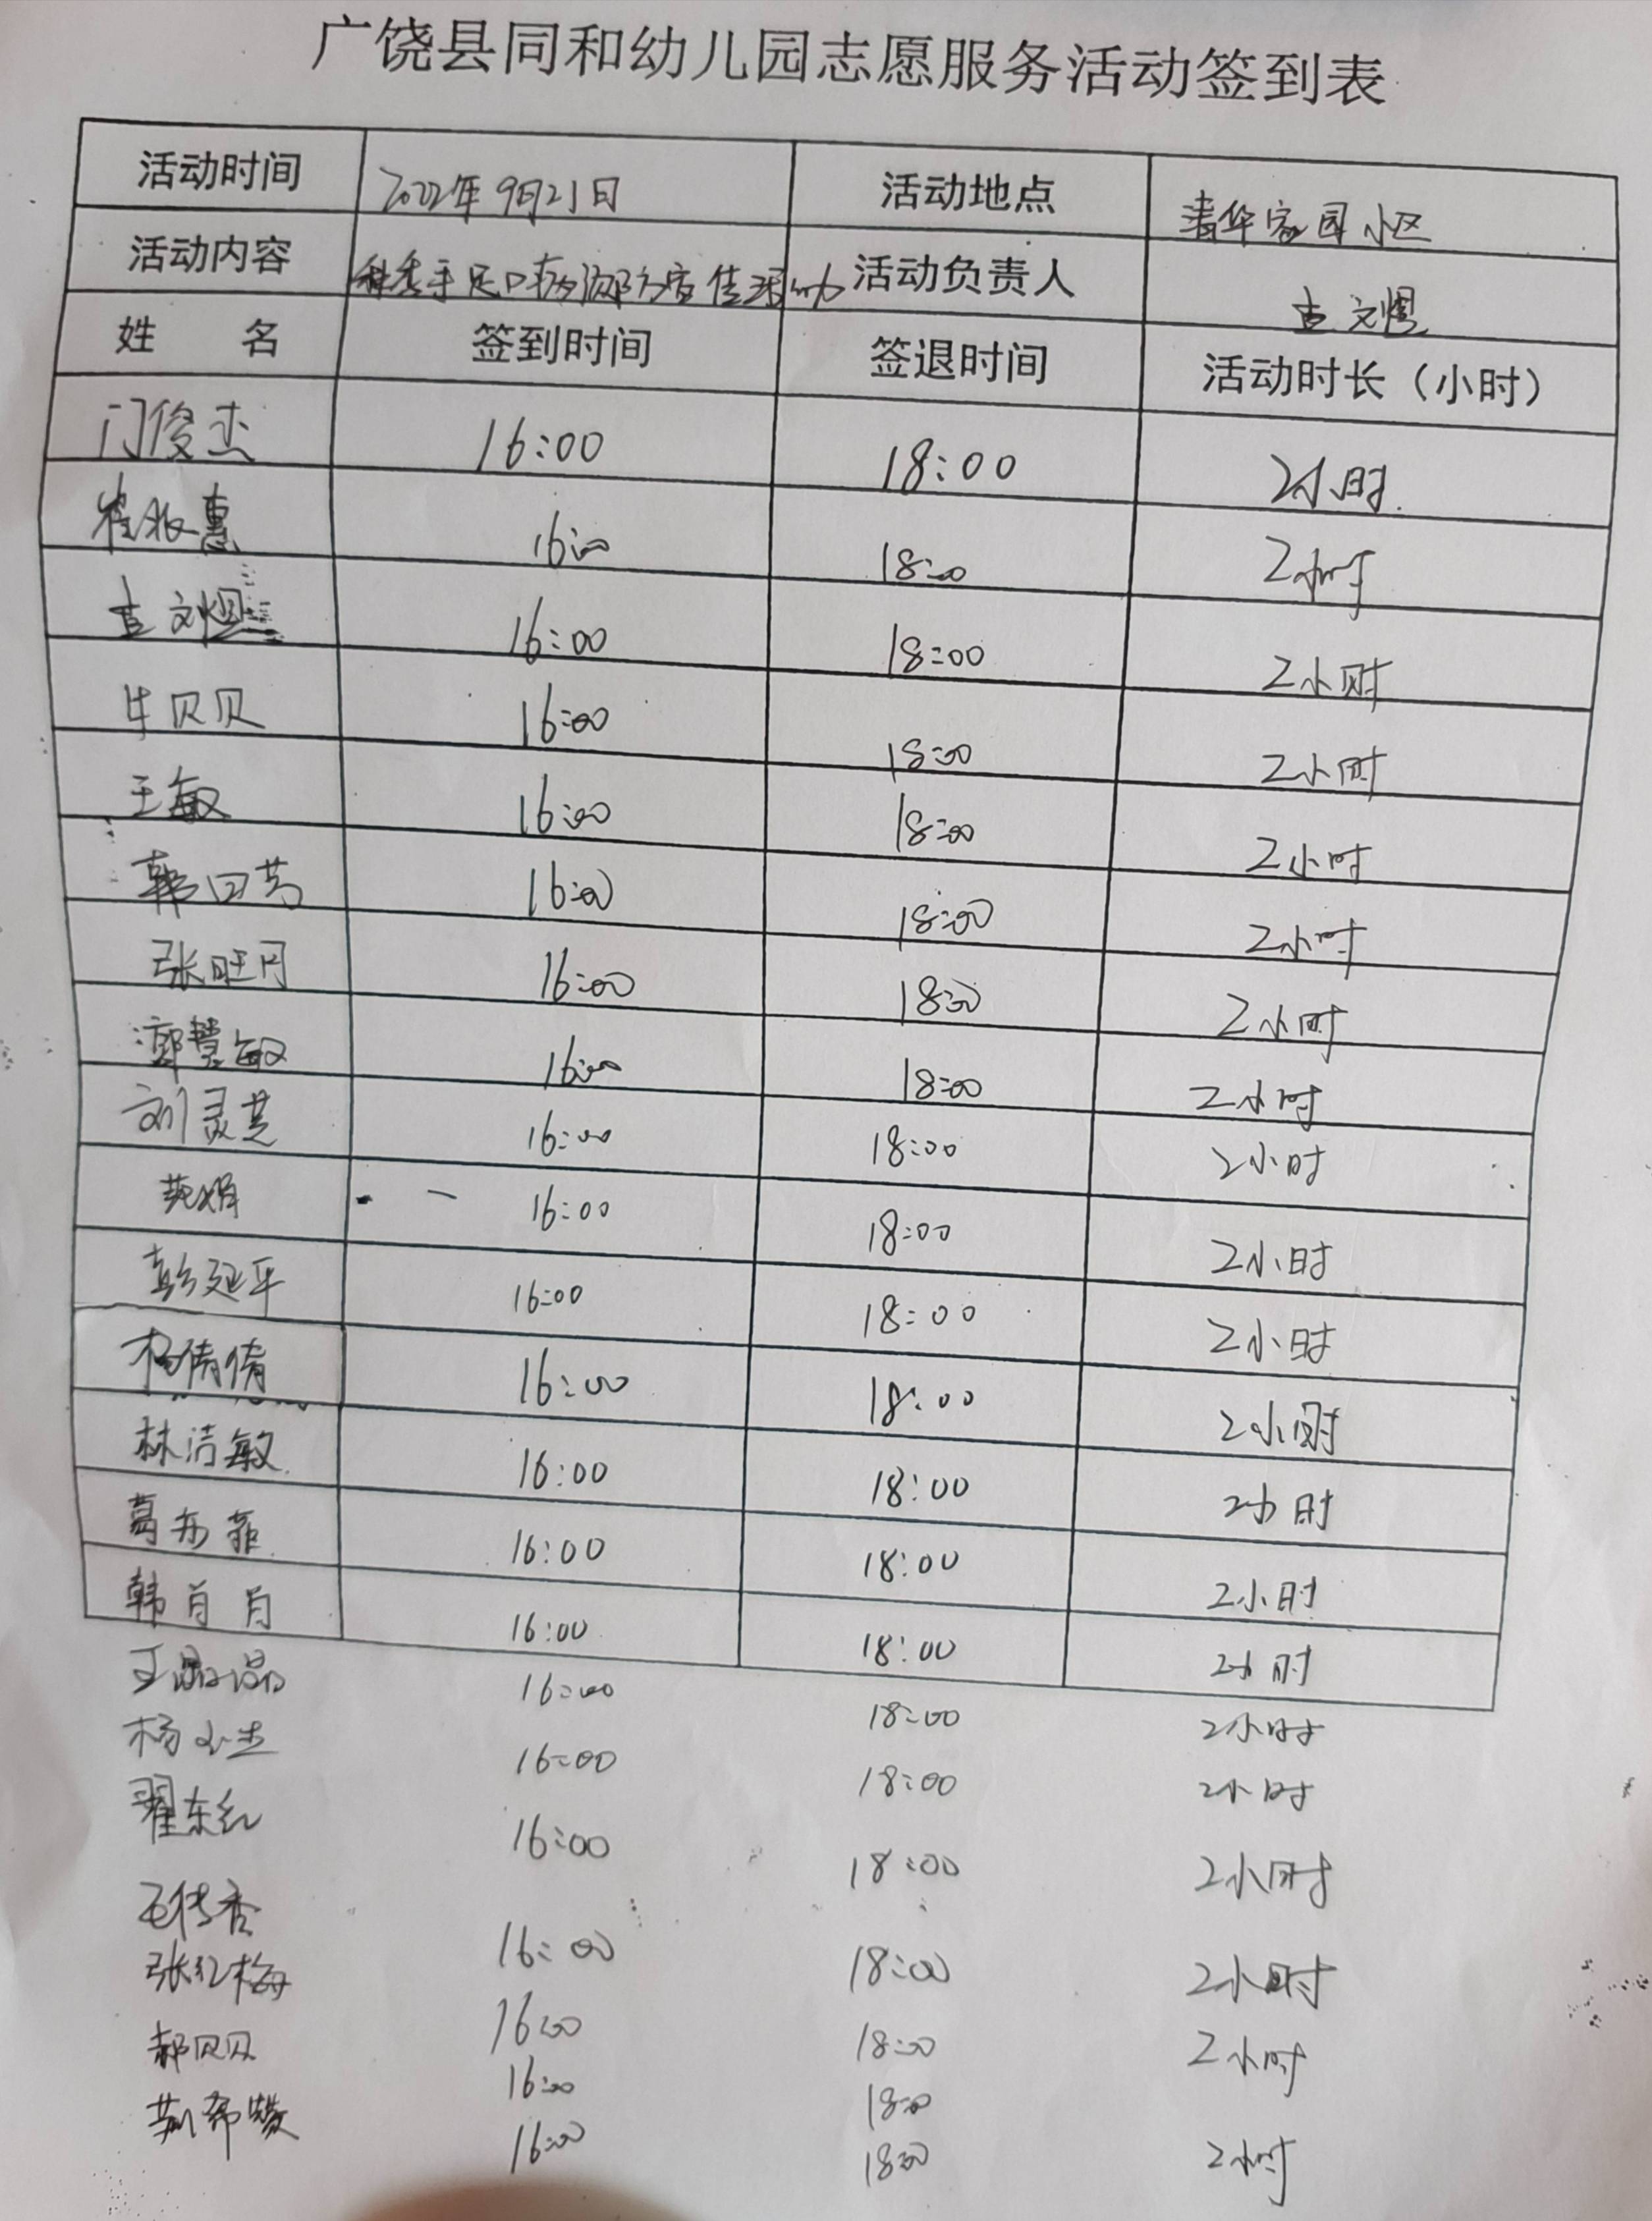 广饶县同和幼儿园志愿服务活动签到表
活动时间 2022年9月21日 活动地点 清华家园小区
活动内容 秋季手足口病预防宣传活动 活动负责人 袁文煜
姓 名 签到时间 签退时间 活动时长（小时）
门俊杰 16:00 18:00 2小时
崔淑惠 16:00 18:00 2小时
文煜 16:00 18:00 2小时
牛贝贝 16:00 18:00 2小时
王敏 16:00 18:00 2小时
韩曰芳 16:00 18:00 2小时
张旺月 16:00 18:00 2小时
郭慧敏 16:00 18:00 2小时
刘灵芝 16:00 18:00 2小时
16:00 18:00 2小时
彭延平 16:00 18:00 2小时
杨倩倩 16:00 18:00 2小时
林洁敏 16:00 18:00 2小时
葛亦菲 16:00 18:00 2小时
韩肖肖 16:00 18:00 2小时
王 16:00 18:00 2小时
杨小兰 16:00 18:00 2小时
翟东红 16:00 18:00 2小时
石传香 16:00 18:00 2小时
张红梅 16:00 18:00 2小时
郝贝贝 16:00 18:00
16:00 18:00 2小时